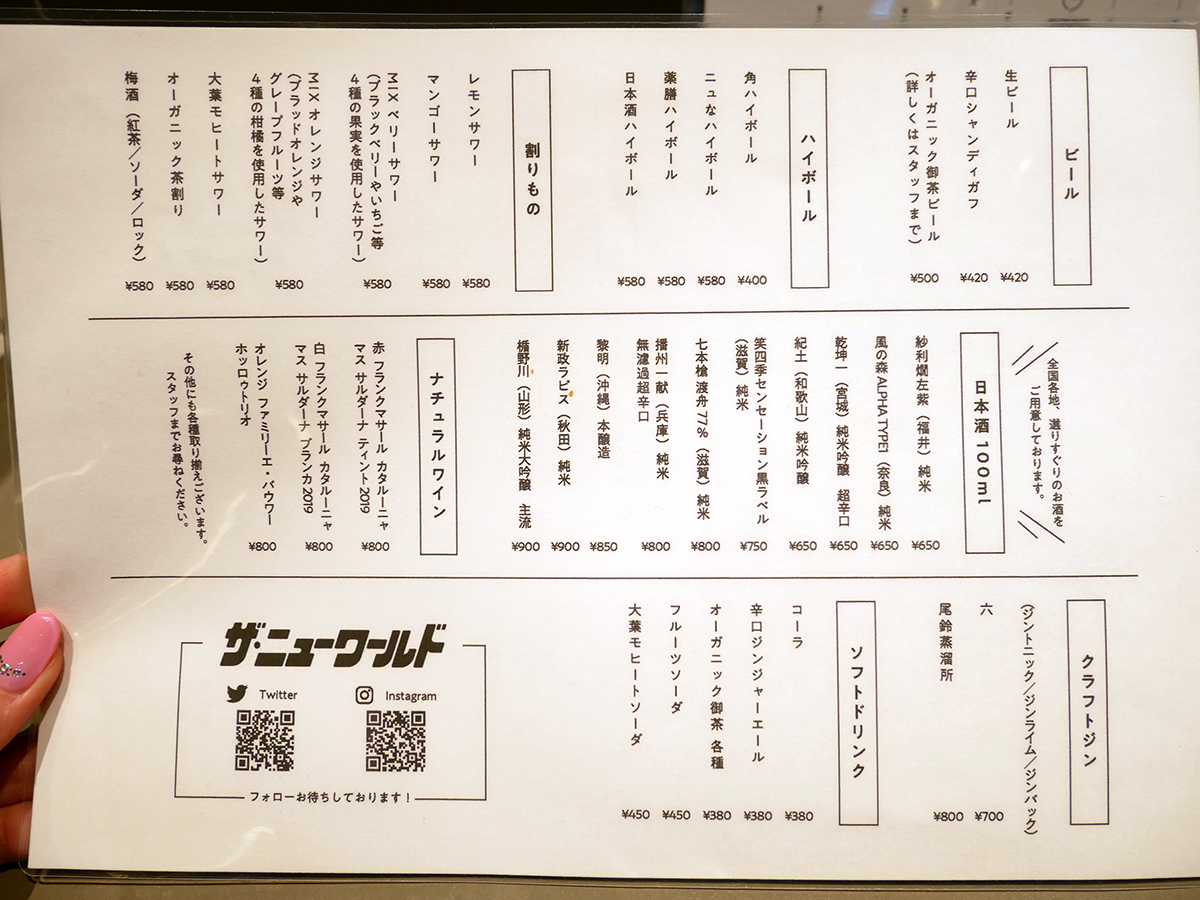 ビール
生ビール
¥420
辛口シャンディガフ
¥420
オーガニック御茶ビール
(詳しくはスタッフまで)
¥500
ハイボール
角ハイボール
¥400
ニュなハイボール
¥580
薬膳ハイボール
¥580
日本酒ハイボール
¥580
割りもの
レモンサワー
¥580
マンゴーサワー
¥580
MIX ベリーサワー
(ブラックベリーやいちご等
4種の果実を使用したサワー)
¥580
MIX オレンジサワー
(ブラッドオレンジや
グレープフルーツ等
4種の柑橘を使用したサワー)
¥580
大葉モヒートサワー
¥580
オーガニック茶割り
¥580
梅酒(紅茶/ソーダ/ロック)
¥580
全国各地、選りすぐりのお酒を
ご用意しております。
日本酒 100ml
紗利 燗左紫(福井)純米
¥650
風の森 ALPHA TYPE1(奈良)純米
¥650
乾坤一(宮城)純米吟醸 超辛口
¥650
紀土(和歌山)純米吟醸
¥650
笑四季センセーション黒ラベル
(滋賀)純米
¥750
七本槍 渡舟 77%(滋賀)純米
¥800
播州一献(兵庫)純米
無濾過超辛口
¥800
黎明(沖縄)本醸造
¥850
新政ラピス(秋田)純米
¥900
楯野川(山形)純米大吟醸 主流
¥900
ナチュラルワイン
赤 フランクマサール カタルーニャ
マス サルダーナ ティント2019
¥800
白 フランクマサール カタルーニャ
マス サルダーナ ブランカ2019
¥800
オレンジ ファミリーエ・バウワー
ホッロゥトリオ
¥800
その他にも各種取り揃えございます。
スタッフまでお尋ねください。
クラフトジン
(ジントニック/ジンライム/ジンバック)
六
¥700
尾鈴蒸溜所
¥800
ソフトドリンク
コーラ
¥380
辛口ジンジャーエール
¥380
オーガニック御茶 各種
¥380
フルーツソーダ
¥450
大葉モヒートソーダ
¥450
ザ・ニューワールド
Twitter
Instagram
フォローお待ちしております!